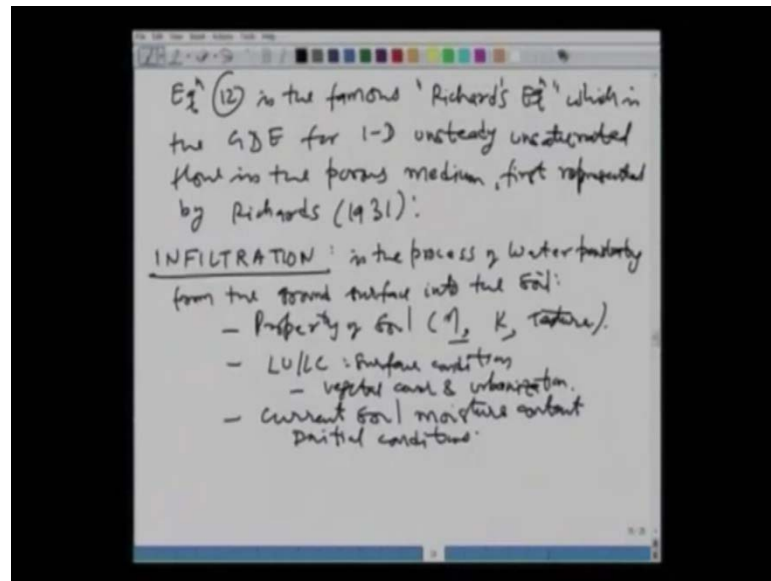 Eqⁿ (12) is the famous "Richard's Eqⁿ" which is
the GDE for 1-D unsteady unsaturated
flow in the porous medium, first represented
by Richards (1931):
INFILTRATION: is the process of Water
from the ground surface into the soil:
- Property of Soil (η, K, Texture).
- LU/LC : Surface condition
- vegetal cover & urbanization.
- Current Soil moisture content
Initial conditions.